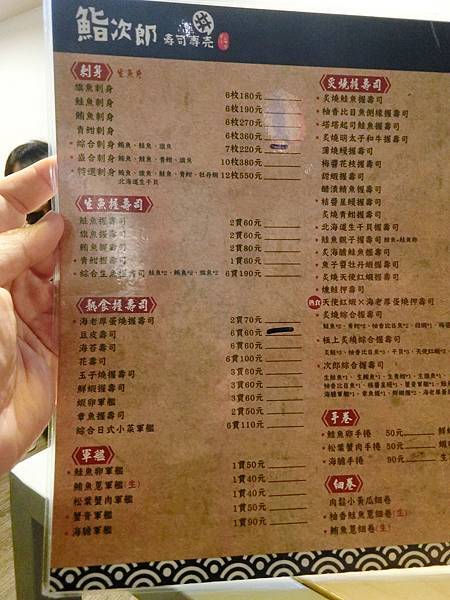 鮨次郎 壽司專売
刺身 生魚片
旗魚刺身 6枚180元
鮭魚刺身 6枚190元
鮪魚刺身 6枚270元
青魽刺身 6枚360元
綜合刺身 鮪魚、鮭魚、旗魚 7枚220元
盛合刺身 鮪魚、鮭魚、青魽、旗魚 10枚380元
特選刺身 鮪魚、旗魚、鮭魚、青魽、牡丹蝦 12枚550元
北海道生干貝
生魚握壽司
鮭魚握壽司 2貫60元
旗魚握壽司 2貫60元
鮪魚握壽司 2貫80元
青魽握壽司 1貫60元
綜合生魚握壽司 鮭魚*2、鮪魚*2、旗魚*2 6貫190元
熟食握壽司
海老厚蛋燒握壽司 2貫70元
豆皮壽司 6貫60元
海苔壽司 6貫60元
花壽司 6貫100元
玉子燒握壽司 3貫60元
鮮蝦握壽司 3貫60元
蝦卵軍艦 3貫60元
章魚握壽司 2貫50元
綜合日式小菜軍艦 6貫110元
軍艦
鮭魚卵軍艦 1貫50元
鮪魚蔥軍艦(生) 1貫40元
松葉蟹肉軍艦 1貫40元
蟹膏軍艦 1貫50元
海膽軍艦 1貫90元
炙燒握壽司
炙燒鮭魚握壽司
柚香比目魚側緣握壽司
塔塔起司鮭魚握壽司
炙燒明太子和牛握壽司
蒲燒鰻握壽司
梅醬花枝握壽司
甜蝦握壽司
醋漬鯖魚握壽司
味醬星鰻握壽司
炙燒青魽握壽司
北海道生干貝握壽司
鮭魚親子握壽司 鮭魚+鮭魚卵
炙海膽鮭魚握壽司
魚子醬牡丹蝦握壽司
炙燒天使紅蝦握壽司
燻鮭押壽司
熟食 天使紅蝦×海老厚蛋燒押壽司
炙燒綜合握壽司
極上炙燒綜合握壽司
次郎綜合握壽司
手卷
鮭魚卵手捲 50元
松葉蟹手捲 50元
海膽手捲 90元
細卷
肉鬆小黃瓜細卷
柚香鮭魚蔥細卷(生)
鮪魚蔥細卷(生)